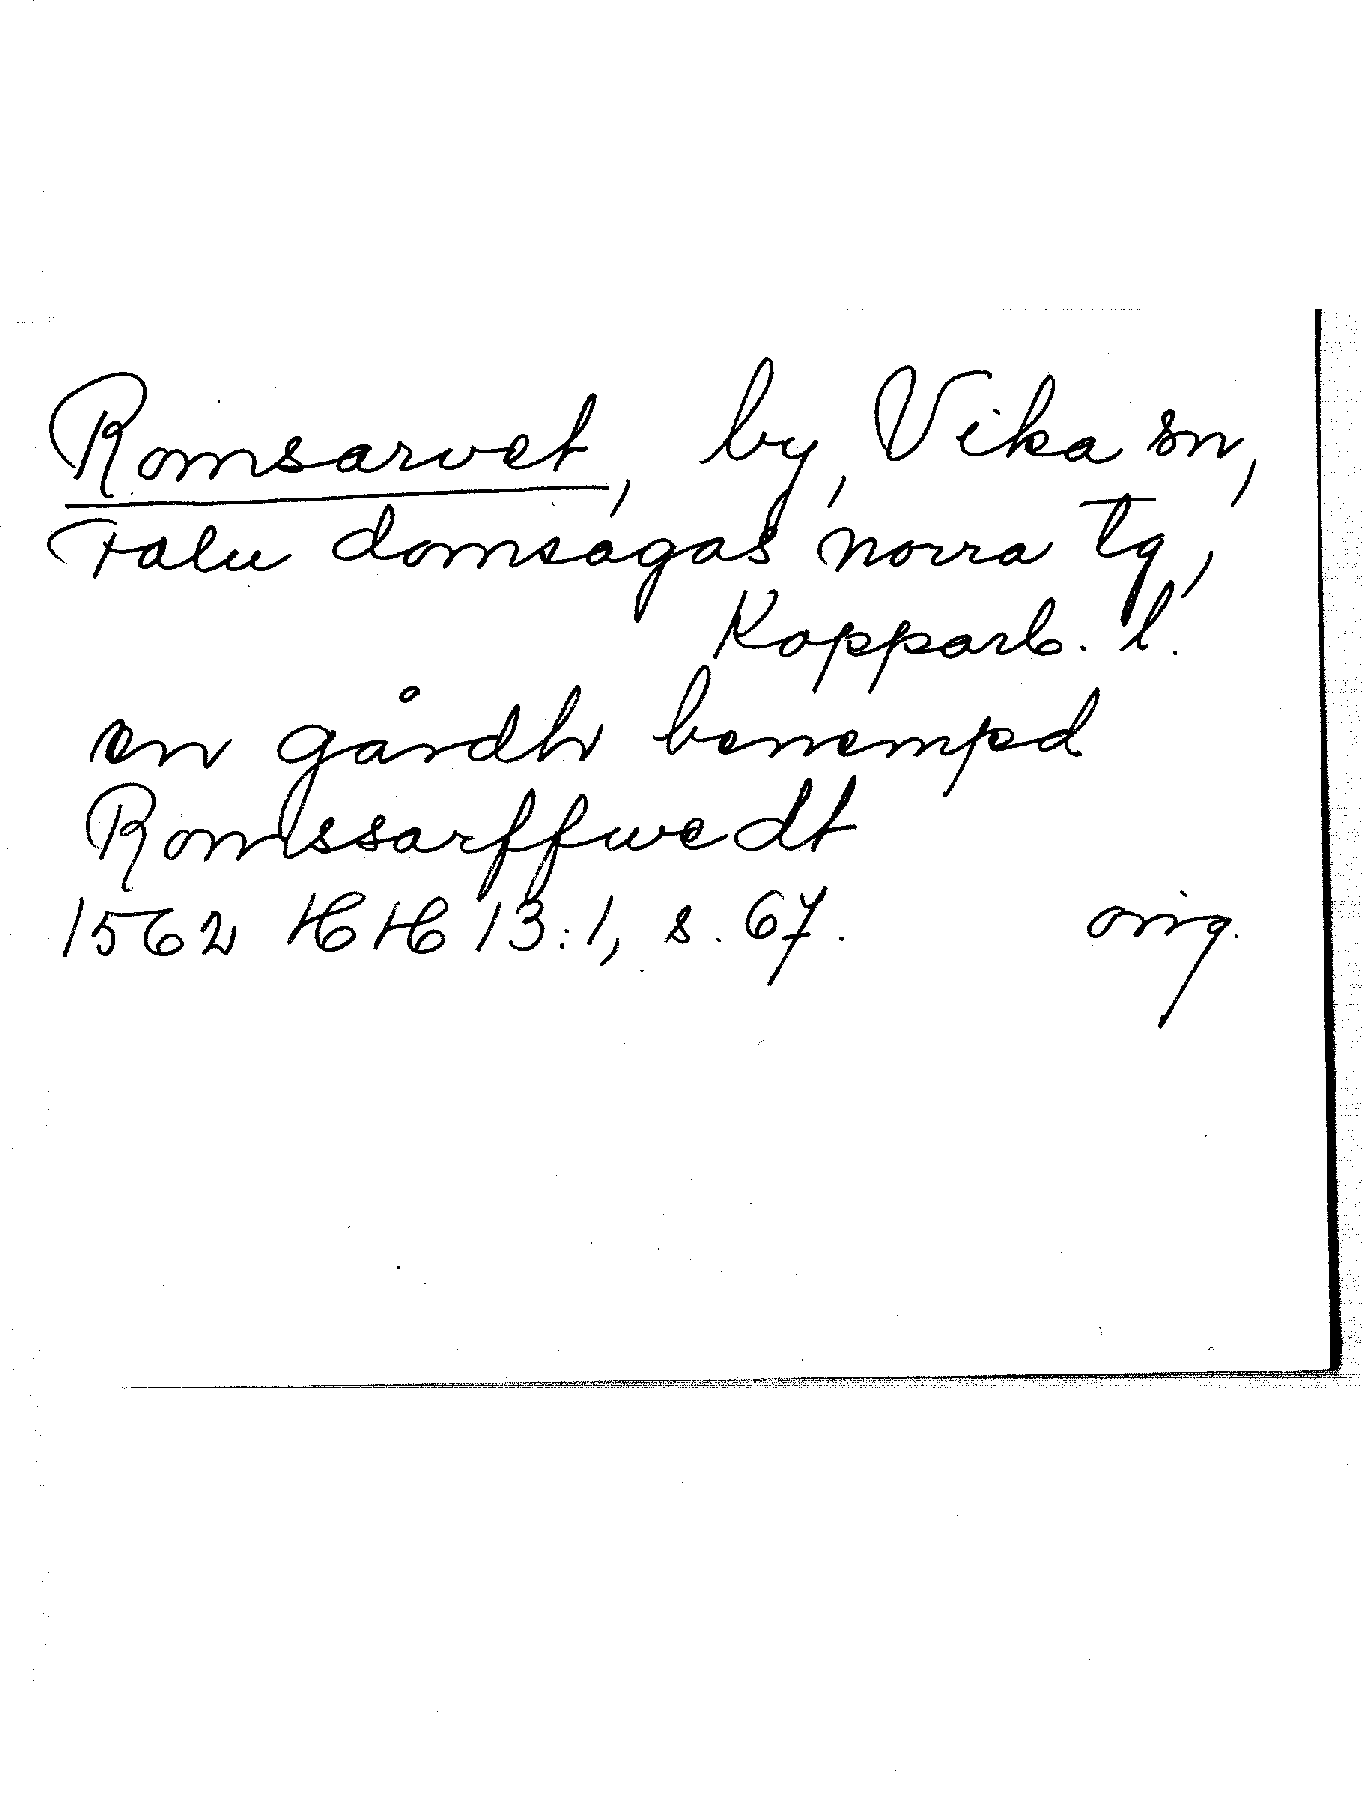 Romsarvet, by, Vika sn,
Falu domsagas norra tg,
Kopparb. l.
en gårdh benempd
Romssarffwedt
1562 HH 13:1, s. 67. orig.